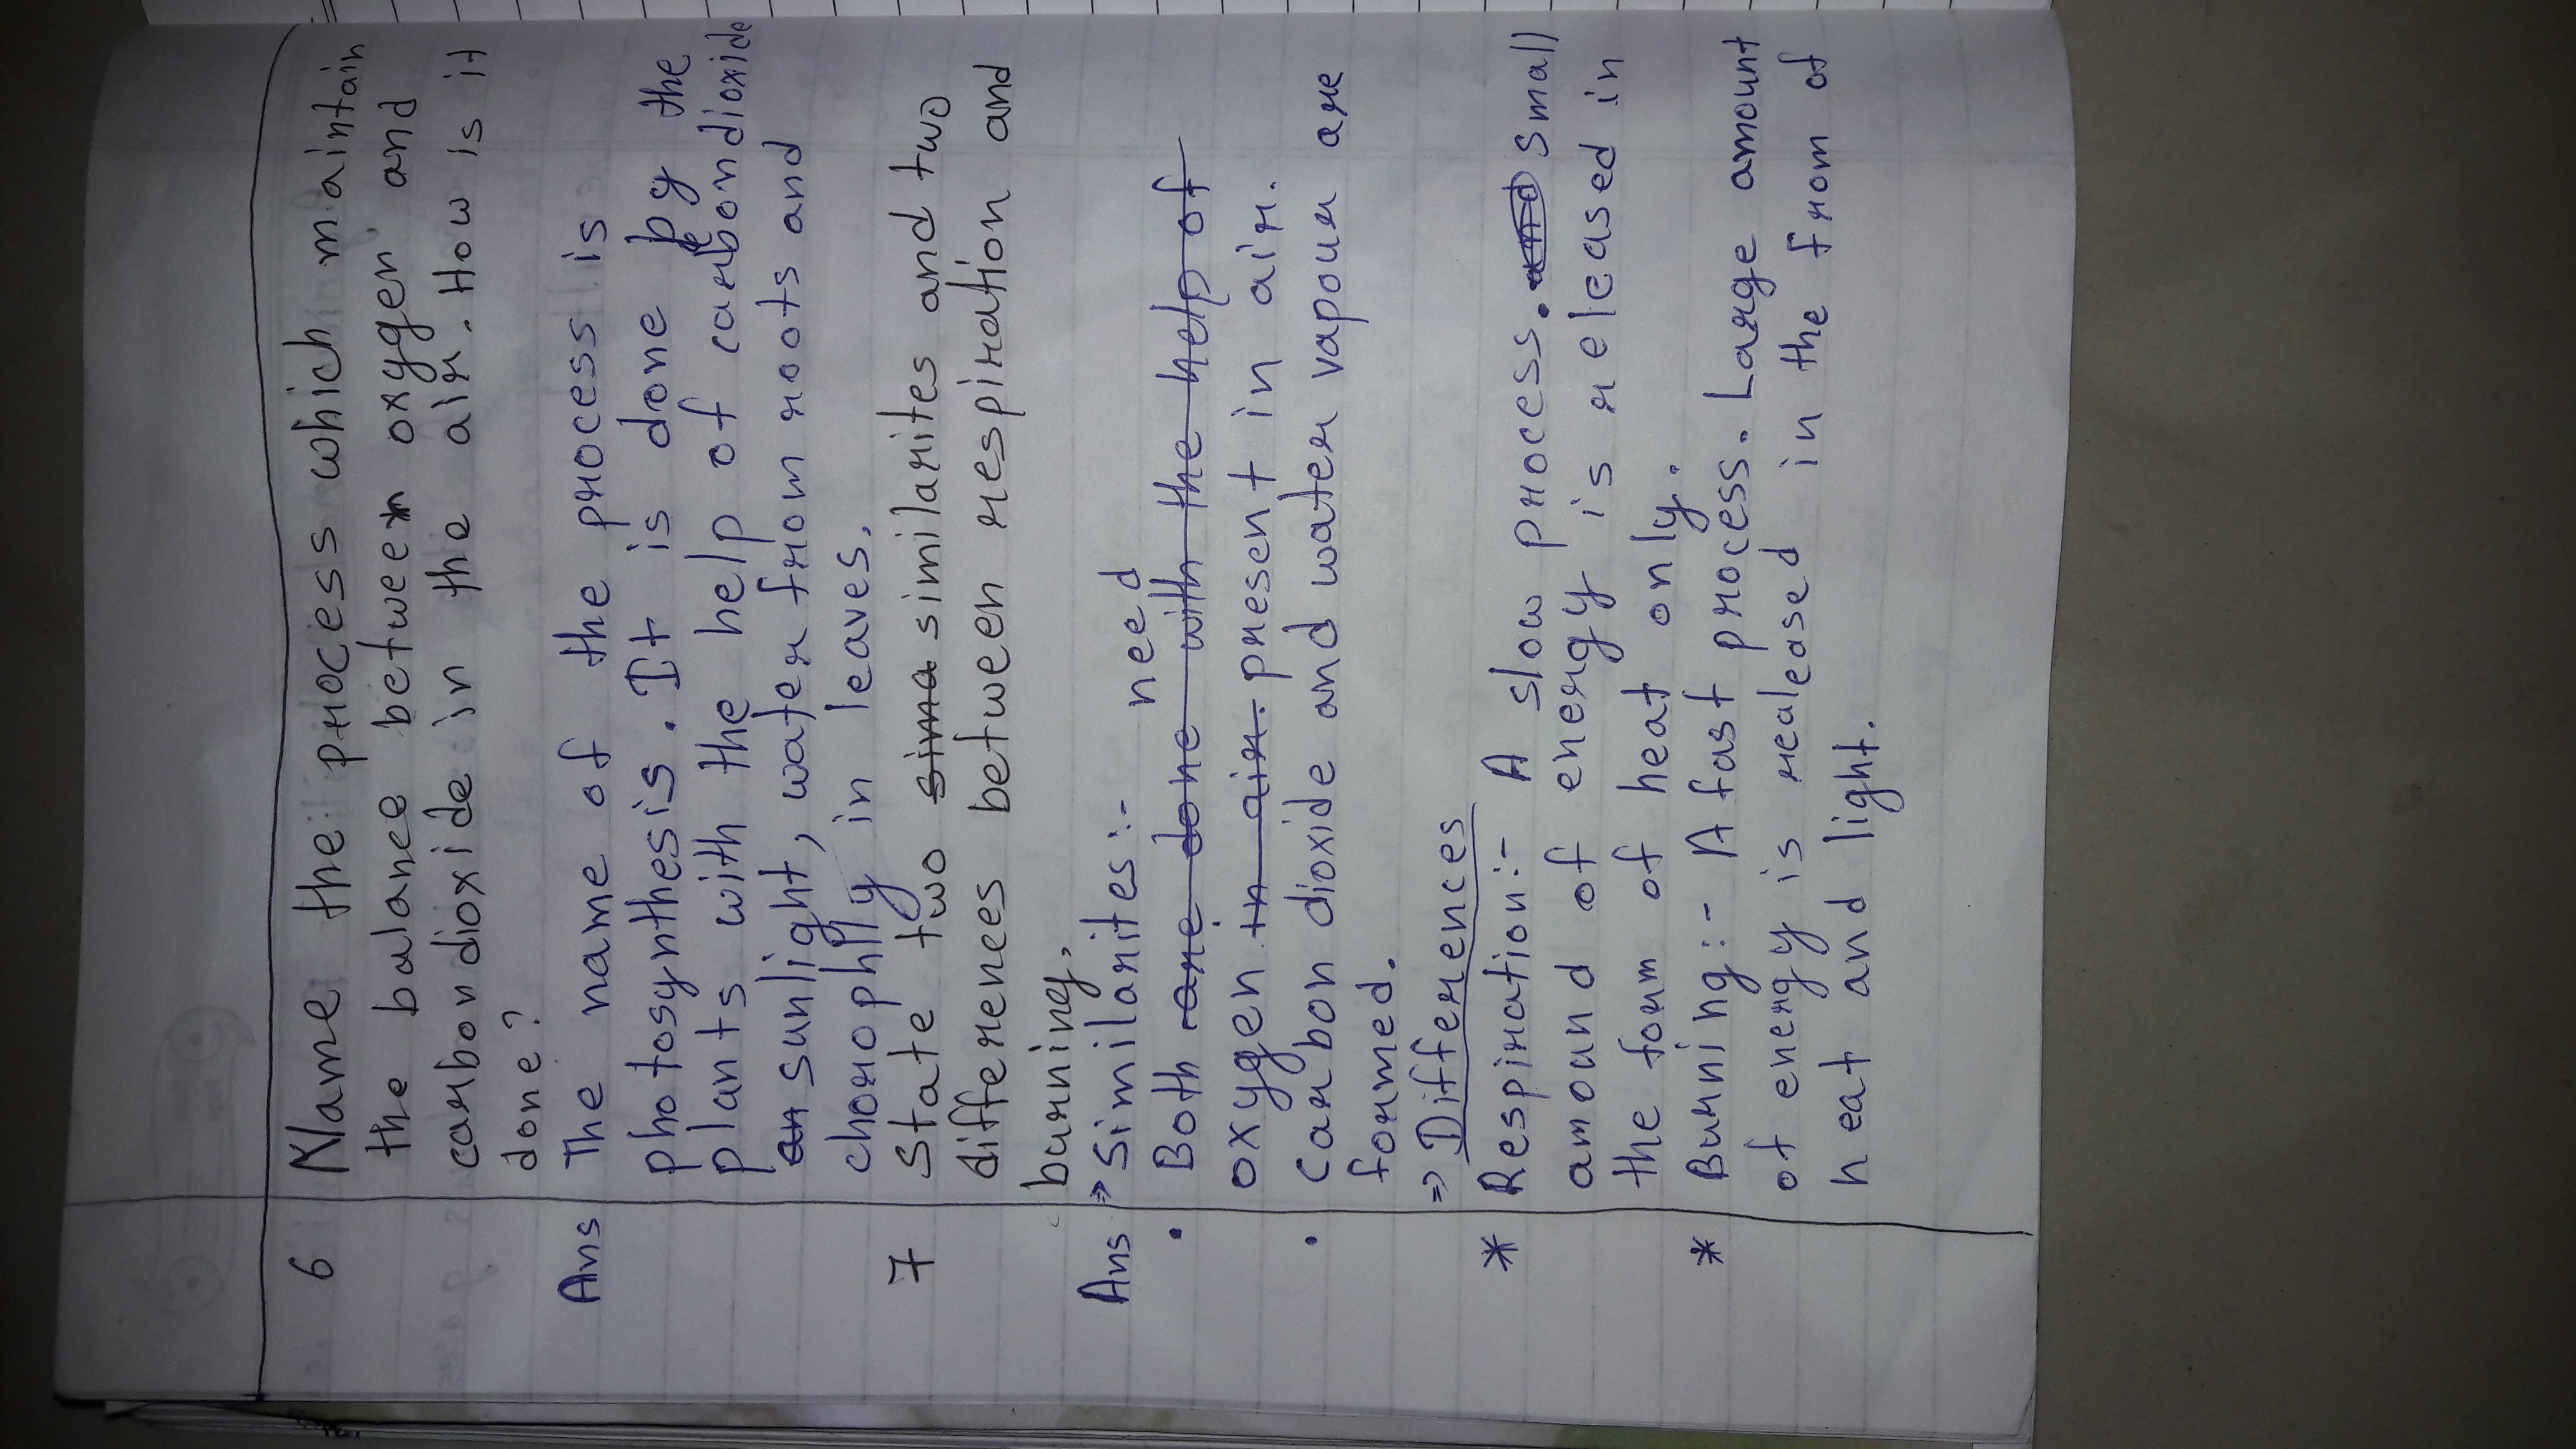 6 Name the process which maintain
the balance betweex oxygen and
carbon dioxide in the air. How is it
done?
Ans The name of the process is
photosynthesis. It is done by the
plants with the help of carbondioxide
an sunlight, water from roots and
chorophlly in leaves.
7 State two sima similarites and two
differences between respiration and
burning.
Ans ⇒ Similarites:-
need
• Both are done with the help of
oxygen in air. present in air.
• Carbon dioxide and water vapour are
formed.
⇒ Differences
* Respiration:- A slow process. and small
amound of energy is released in
the form of heat only.
* Burning:- A fast process. Large amount
of energy is realeased in the from of
heat and light.